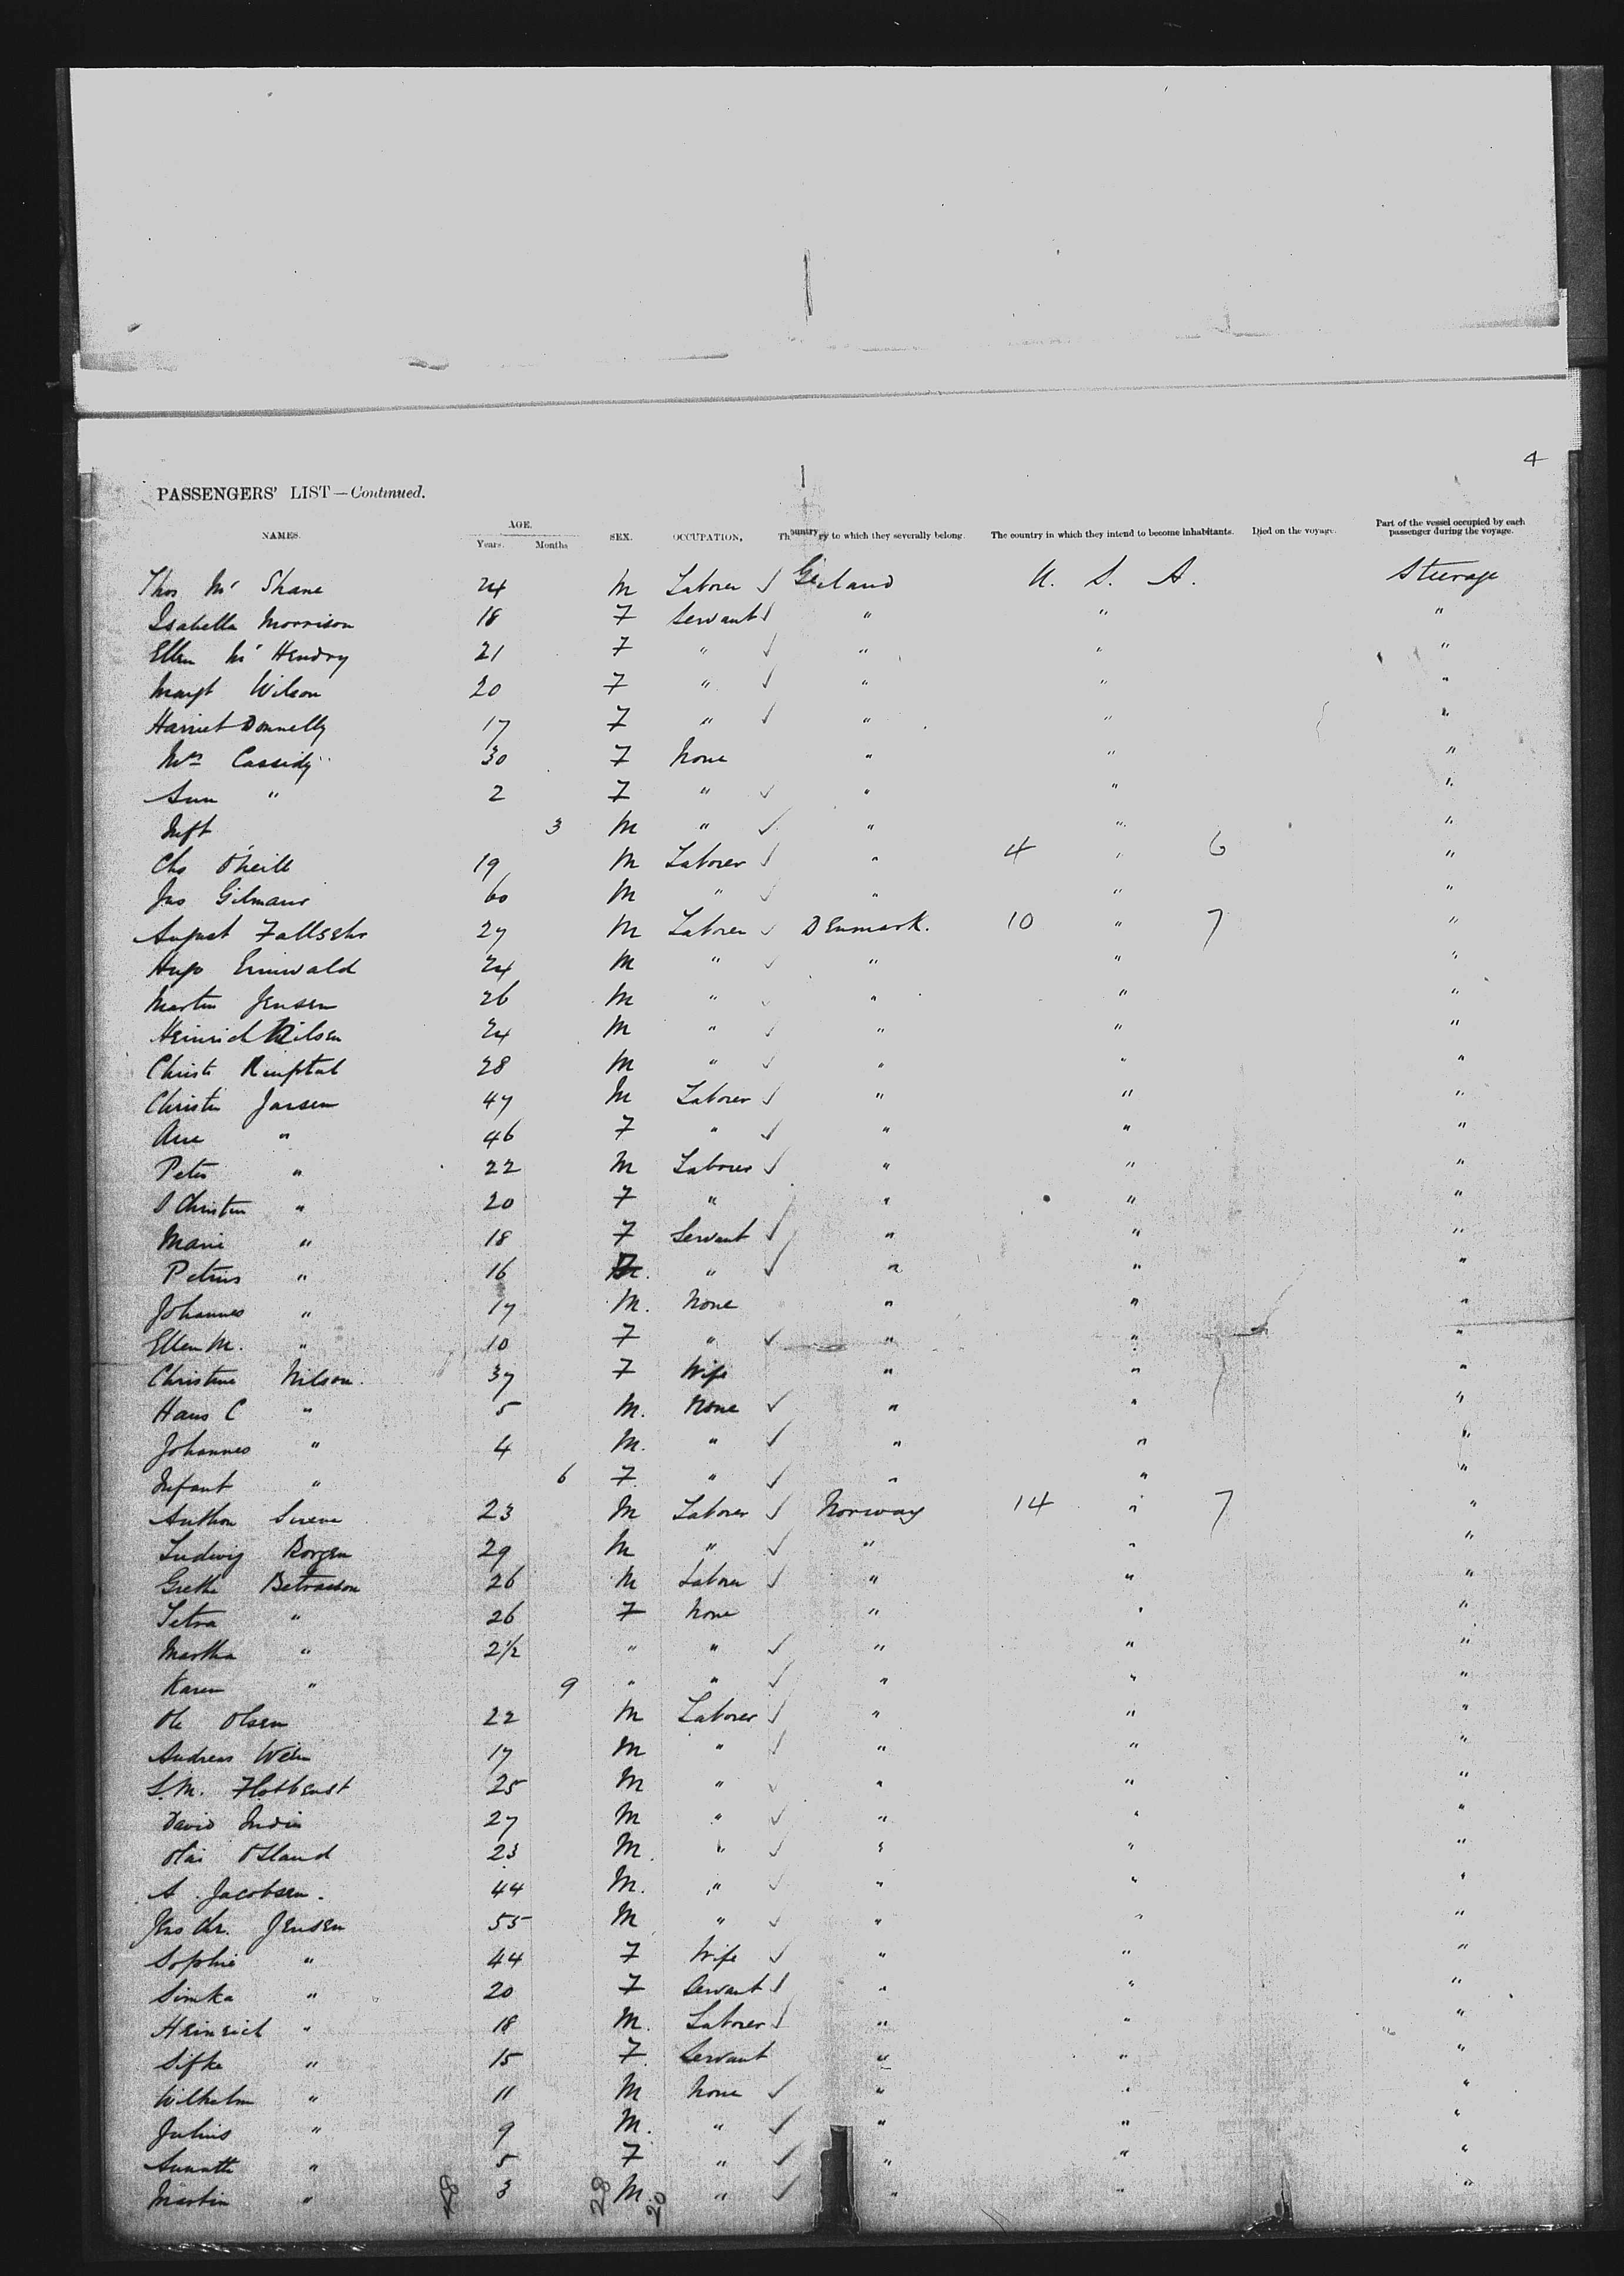 4
PASSENGERS' LIST—Continued.
NAMES. AGE. Years. Months SEX. OCCUPATION. Country to which they severally belong. The country in which they intend to become inhabitants. Died on the voyage. Part of the vessel occupied by each passenger during the voyage.
Thos Mc Shane 24 M Laborer ✓ Ireland U. S. A. Steerage
Isabella Morrison 18 F Servant ✓ " " "
Ellen Mc Hendry 21 F " ✓ " " "
Margt Wilson 20 F " ✓ " " "
Harriet Donnelly 17 F " ✓ " " "
Mrs Cassidy 30 F None " " "
Ann " 2 F " ✓ " " "
Inft 3 M " ✓ " " "
Chs O'Neill 19 M Laborer ✓ " 4 " 6 "
Jno Gilmour 60 M " ✓ " " "
August 27 M Laborer ✓ Denmark. 10 " 7 "
Hugo 24 M " ✓ " " "
Martin Jensen 26 M " ✓ " " "
Heinrich Nilsen 24 M " ✓ " " "
Christ 28 M " ✓ " " "
Christen Jansen 47 M Laborer ✓ " " "
Ane " 46 F " ✓ " " "
Peter " 22 M Laborer ✓ " " "
Christen " 20 F " " " "
Marie " 18 F Servant ✓ " " "
Petrius " 16 " ✓ " " "
Johannes " 17 M. None " " "
Ellen M. " 10 F " ✓ " " "
Christine Nilson. 37 F Wife " " "
Hans C " 5 M. None ✓ " " "
Johannes " 4 M. " ✓ " " "
Infant " 6 F. " ✓ " " "
Anthon 23 M Laborer ✓ Norway 14 " 7 "
Ludwig Borgen 29 M " ✓ " " "
Grethe 26 M Laborer ✓ " " "
" 26 F None " " "
Martha " 2½ " " ✓ " " "
Karen " 9 " " ✓ " " "
Ole Olsen 22 M Laborer ✓ " " "
Andreas 17 M " ✓ " " "
25 M " ✓ " " "
David 27 M " ✓ " " "
23 M. " ✓ " " "
A Jacobsen. 44 M. " ✓ " " "
Jensen 55 M " ✓ " " "
Sophie " 44 F Wife ✓ " " "
Simka " 20 F Servant ✓ " " "
Heinrich " 18 M. Laborer ✓ " " "
Sifke " 15 F. Servant " " "
Wilhelm " 11 M None ✓ " " "
Julius " 9 M. " ✓ " " "
" 5 F " ✓ " " "
Martin " 3 M. " ✓ " " "
48 28 20